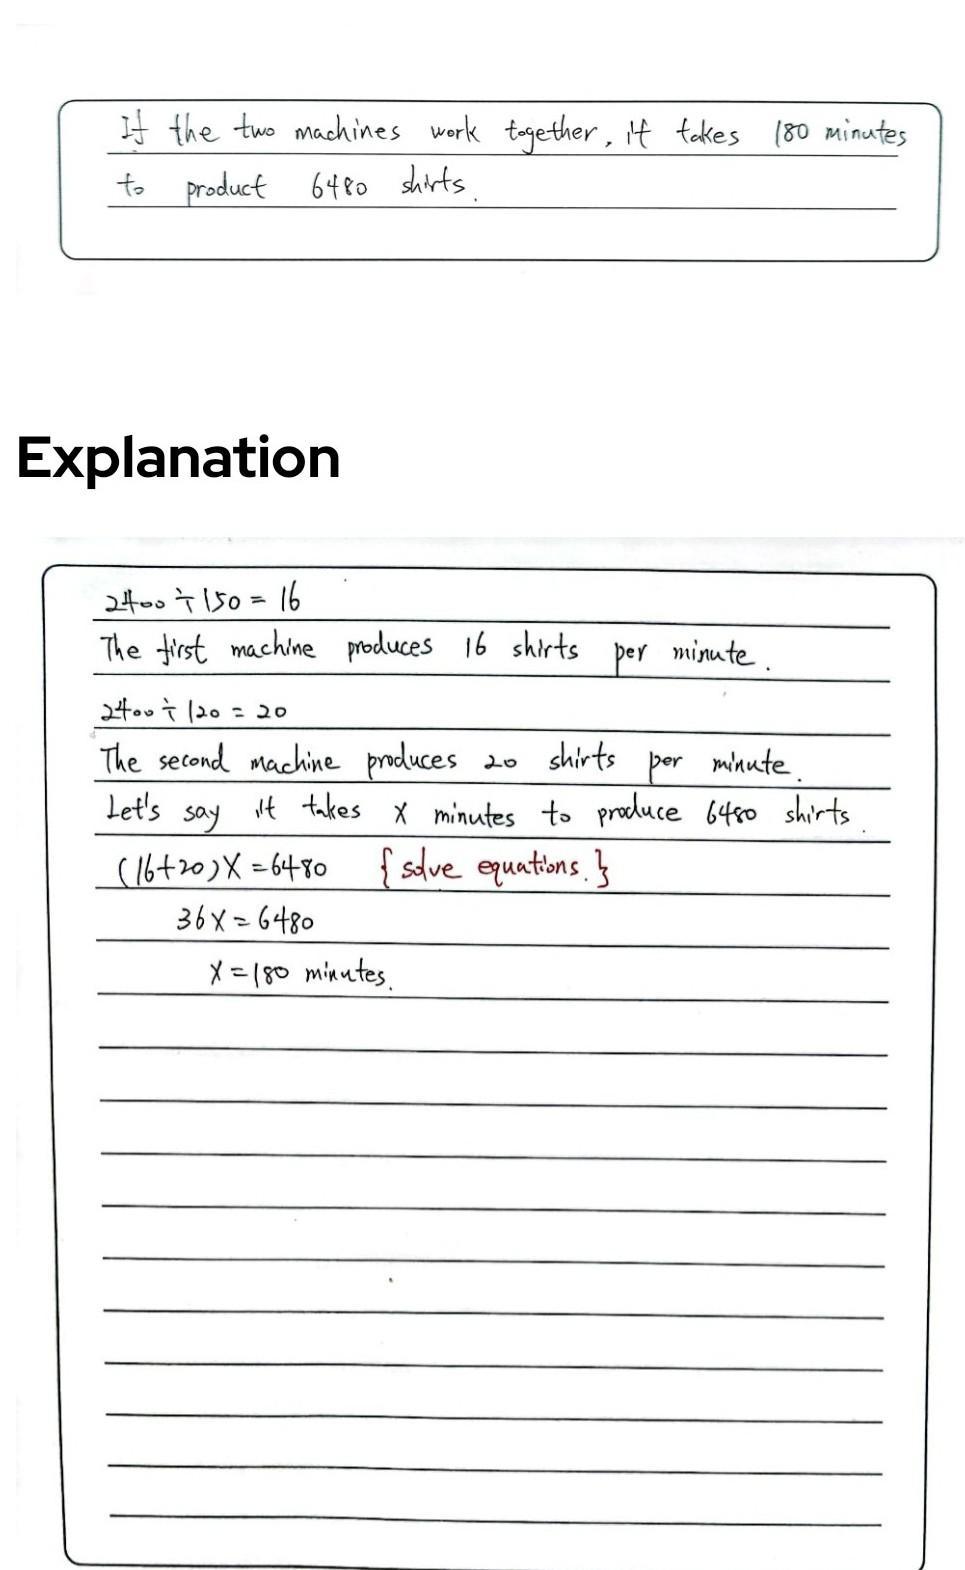 If the two machines work together, it takes 180 minutes
to product 6480 shirts.
Explanation
2400 ÷ 150 = 16
The first machine produces 16 shirts per minute.
2400 ÷ 120 = 20
The second machine produces 20 shirts per minute.
Let's say it takes x minutes to produce 6480 shirts.
(16+20)x = 6480 {solve equations.}
36x = 6480
x = 180 minutes.